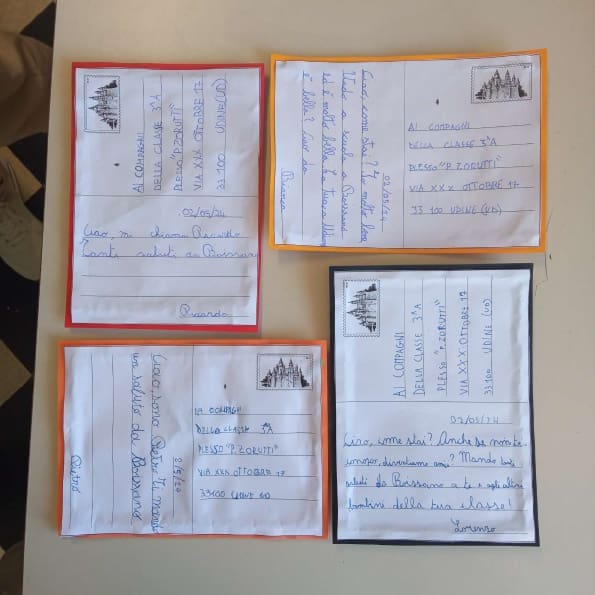 AI COMPAGNI
DELLA CLASSE 3^A
PLESSO "P.ZORUTTI"
VIA XXX OTTOBRE 17
33100 UDINE (UD)
02/05/24
Ciao, mi chiamo Riccardo
Tanti saluti da Boissano
Riccardo
AI COMPAGNI
DELLA CLASSE 3^A
PLESSO "P.ZORUTTI"
VIA XXX OTTOBRE 17
33100 UDINE (UD)
02/05/24
Ciao, come stai? Io molto bene
Vado a scuola a Boissano
ed è molto bella. La tua a Udine
è bella? Ciao da
Bianca
COMPAGNI
DELLA CLASSE 3^A
PLESSO "P.ZORUTTI"
VIA XXX OTTOBRE 17
33100 UDINE
2/5/24
Ciao, sono Pietro. Ti mando
un saluto da Boissano
Pietro
AI COMPAGNI
DELLA CLASSE 3^A
PLESSO "P.ZORUTTI"
VIA XXX OTTOBRE 17
33100 UDINE (UD)
02/05/24
Ciao, come stai? Anche se non te
conosco, diventiamo amici? Mando tanti
saluti da Boissano a te e agli altri
bambini della tua classe!
Lorenzo